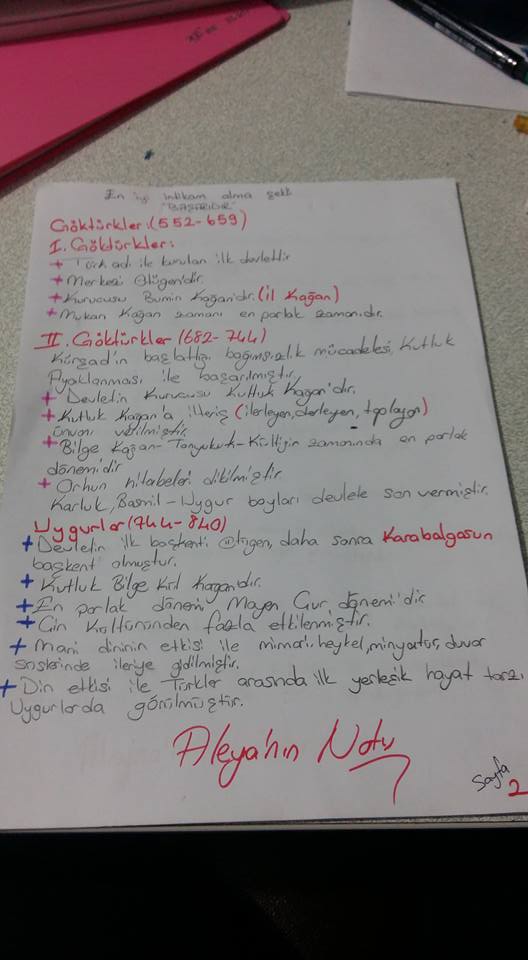 En iyi intikam alma şekli
"BAŞARIDIR"
Göktürkler:(552-659)
I. Göktürkler:
+ Türk adı ile kurulan ilk devlettir
+ Merkezi Ötügen'dir.
+ Kurucusu Bumin Kağan'dır.(İl Kağan)
+ Mukan Kağan zamanı en parlak zamanıdır.
II. Göktürkler (682-744)
Kürşad'ın başlattığı bağımsızlık mücadelesi, Kutluk
Ayaklanması ile başarılmıştır.
+ Devletin Kurucusu Kutluk Kağan'dır.
+ Kutluk Kağan'a İlteriş (ilerleyen, derleyen, toplayan)
ünvanı verilmiştir.
+ Bilge Kağan-Tonyukuk-Kültigin zamanında en parlak
dönemidir
+ Orhun kitabeleri dikilmiştir.
Karluk, Basmil-Uygur boyları devlete son vermiştir.
Uygurlar(744-840)
+ Devletin ilk başkenti Ötügen, daha sonra Karabalgasun
başkent olmuştur.
+ Kutluk Bilge Kül Kağan'dır.
+ En parlak dönemi Moyen Çur, dönemi'dir
+ Çin Kültüründen fazla etkilenmiştir.
+ Mani dininin etkisi ile mimari, heykel, minyatür, duvar
süslerinde ileriye gidilmiştir.
+ Din etkisi ile Türkler arasında ilk yerleşik hayat tarzı
Uygurlarda görülmüştür.
Aleya'nın Notu
Sayfa
2